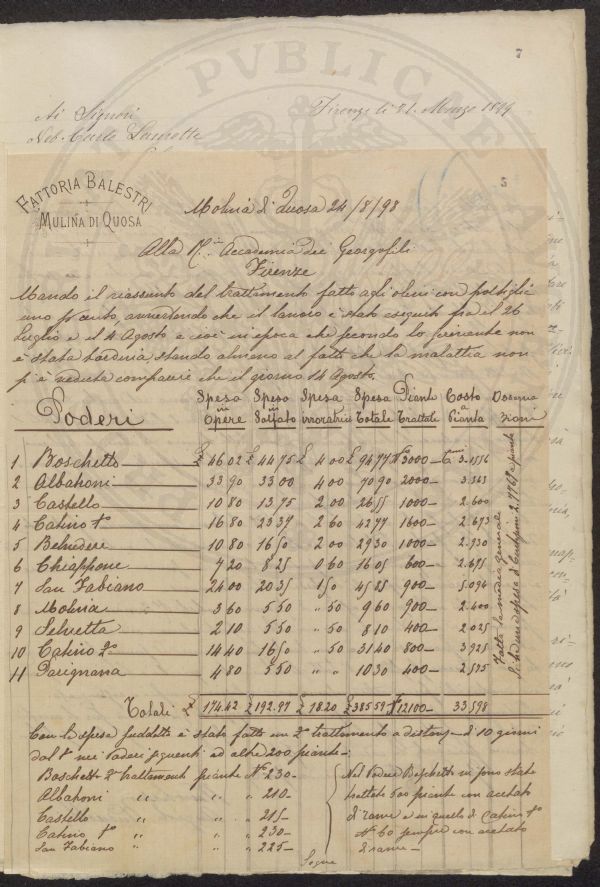 PVBLICAE
7
Firenze li 21. Marzo 1899
Ai Signori
Nob. Carlo
5
FATTORIA BALESTRI
MULINA DI QUOSA
Molina di Quosa 24/8/98
Alla R. Accademia dei Georgofili
Firenze
Mando il riassunto del trattamento fatto agli olivi con poltiglia
uno p cento, avvertendo che il lavoro è stato eseguito fra il 26
Luglio e il 4 Agosto e cioè in epoca che secondo lo scrivente non
è stata tardiva, stando almeno al fatto che la malattia non
si è veduta comparire che il giorno 14 Agosto.
Poderi Spesa in Opere Spesa in Solfato Spesa Spesa Totale Piante Trattate Costo a Pianta Osservazioni
1 Boschetto £ 46 02 £ 44 75 £ 4 00 £ 94 77 N° 3000 3.1556
2 Albakoni 33 90 33 00 4 00 70 90 2000 3.543
3 Castello 10 80 13,75 2 00 26 55 1000 2.600
4 Catino 1° 16 80 23 37 2 60 42 77 1600 2.673
5 Belvedere 10 80 16 50 2 00 29 30 1000 2.930
6 Chiappone 7 20 8 25 0 60 16 05 600 2.675
7 San Fabiano 24 00 20 35 1 50 45 85 900 5.094
8 Molina 3 60 5 50 " 50 9 60 400 2.400
9 Selvetta 2 10 5 50 " 50 8 10 400 2.025
10 Catino 2° 14 40 16 50 " 50 31 40 800 3.925
11 Parignana 4 80 5 50 " " 10 30 400 2.575
Fatta la media generale
si ha una spesa di Centesimi 2.7768 a pianta
Totali £ 174.42 £ 192.97 £ 18 20 £ 385 59 N° 12100 33.598
Con la spesa suddetta è stato fatto un 2° trattamento a distanza di 10 giorni
dal 1° nei Poderi seguenti ad altre 200 piante
Boschetto 2° trattamento piante N° 230
Albakoni " " " 210
Castello " " " 215
Catino 1° " " " 230
San Fabiano " " " 225
Nel Podere Boschetti ne sono state
trattate 500 piante con acetato
di rame e in quello di Catino 1°
N° 60 sempre con acetato
di rame
Segue